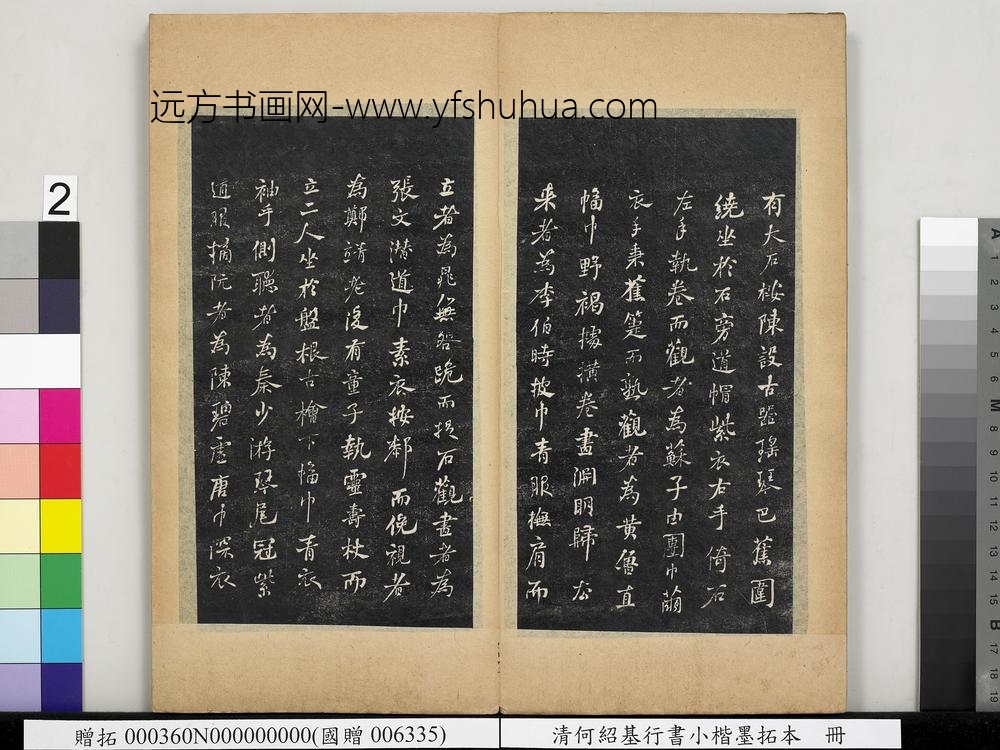 远方书画网-www.yfshuhua.com
有大石桉陳設古器瑤琴巴蕉圍
繞坐於石旁道帽紫衣右手倚石
左手執卷而觀者為蘇子由團巾繭
衣手秉蕉箑而熟觀者為黄魯直
幅巾野褐據橫卷畫淵明歸去
来者為李伯時披巾青服撫肩而
立者為晁無咎跪而捉石觀畫者為
張文潛道巾素衣按郄而俛視者
為鄭靖老後有童子執靈壽杖而
立二人坐於盤根古檜下幅巾青衣
袖手側聽者為秦少游琴尾冠紫
道服摘阮者為陳碧虛唐巾深衣
2
A 1 2 3 4 5 6 M 8 9 10 11 12 13 14 15 B 17 18 19
贈拓 000360N000000000(國贈 006335)
清何紹基行書小楷墨拓本 冊